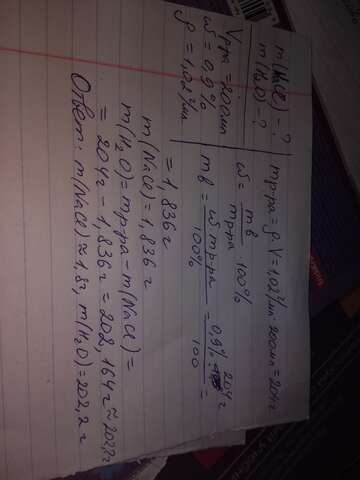 Vр-ра = 200мл
ω = 0,9%
ρ = 1,02 г/мл
m(NaCl) - ?
m(H₂O) - ?
mр-ра = ρ · V = 1,02 г/мл · 200мл = 204г
ω = mв / mр-ра · 100%
mв = ω · mр-ра / 100% = 0,9% · 204г / 100 =
= 1,836г
m(NaCl) = 1,836г
m(H₂O) = mр-ра - m(NaCl) =
= 204г - 1,836г = 202,164г ≈ 202,2г
Ответ: m(NaCl) ≈ 1,8г, m(H₂O) = 202,2 г